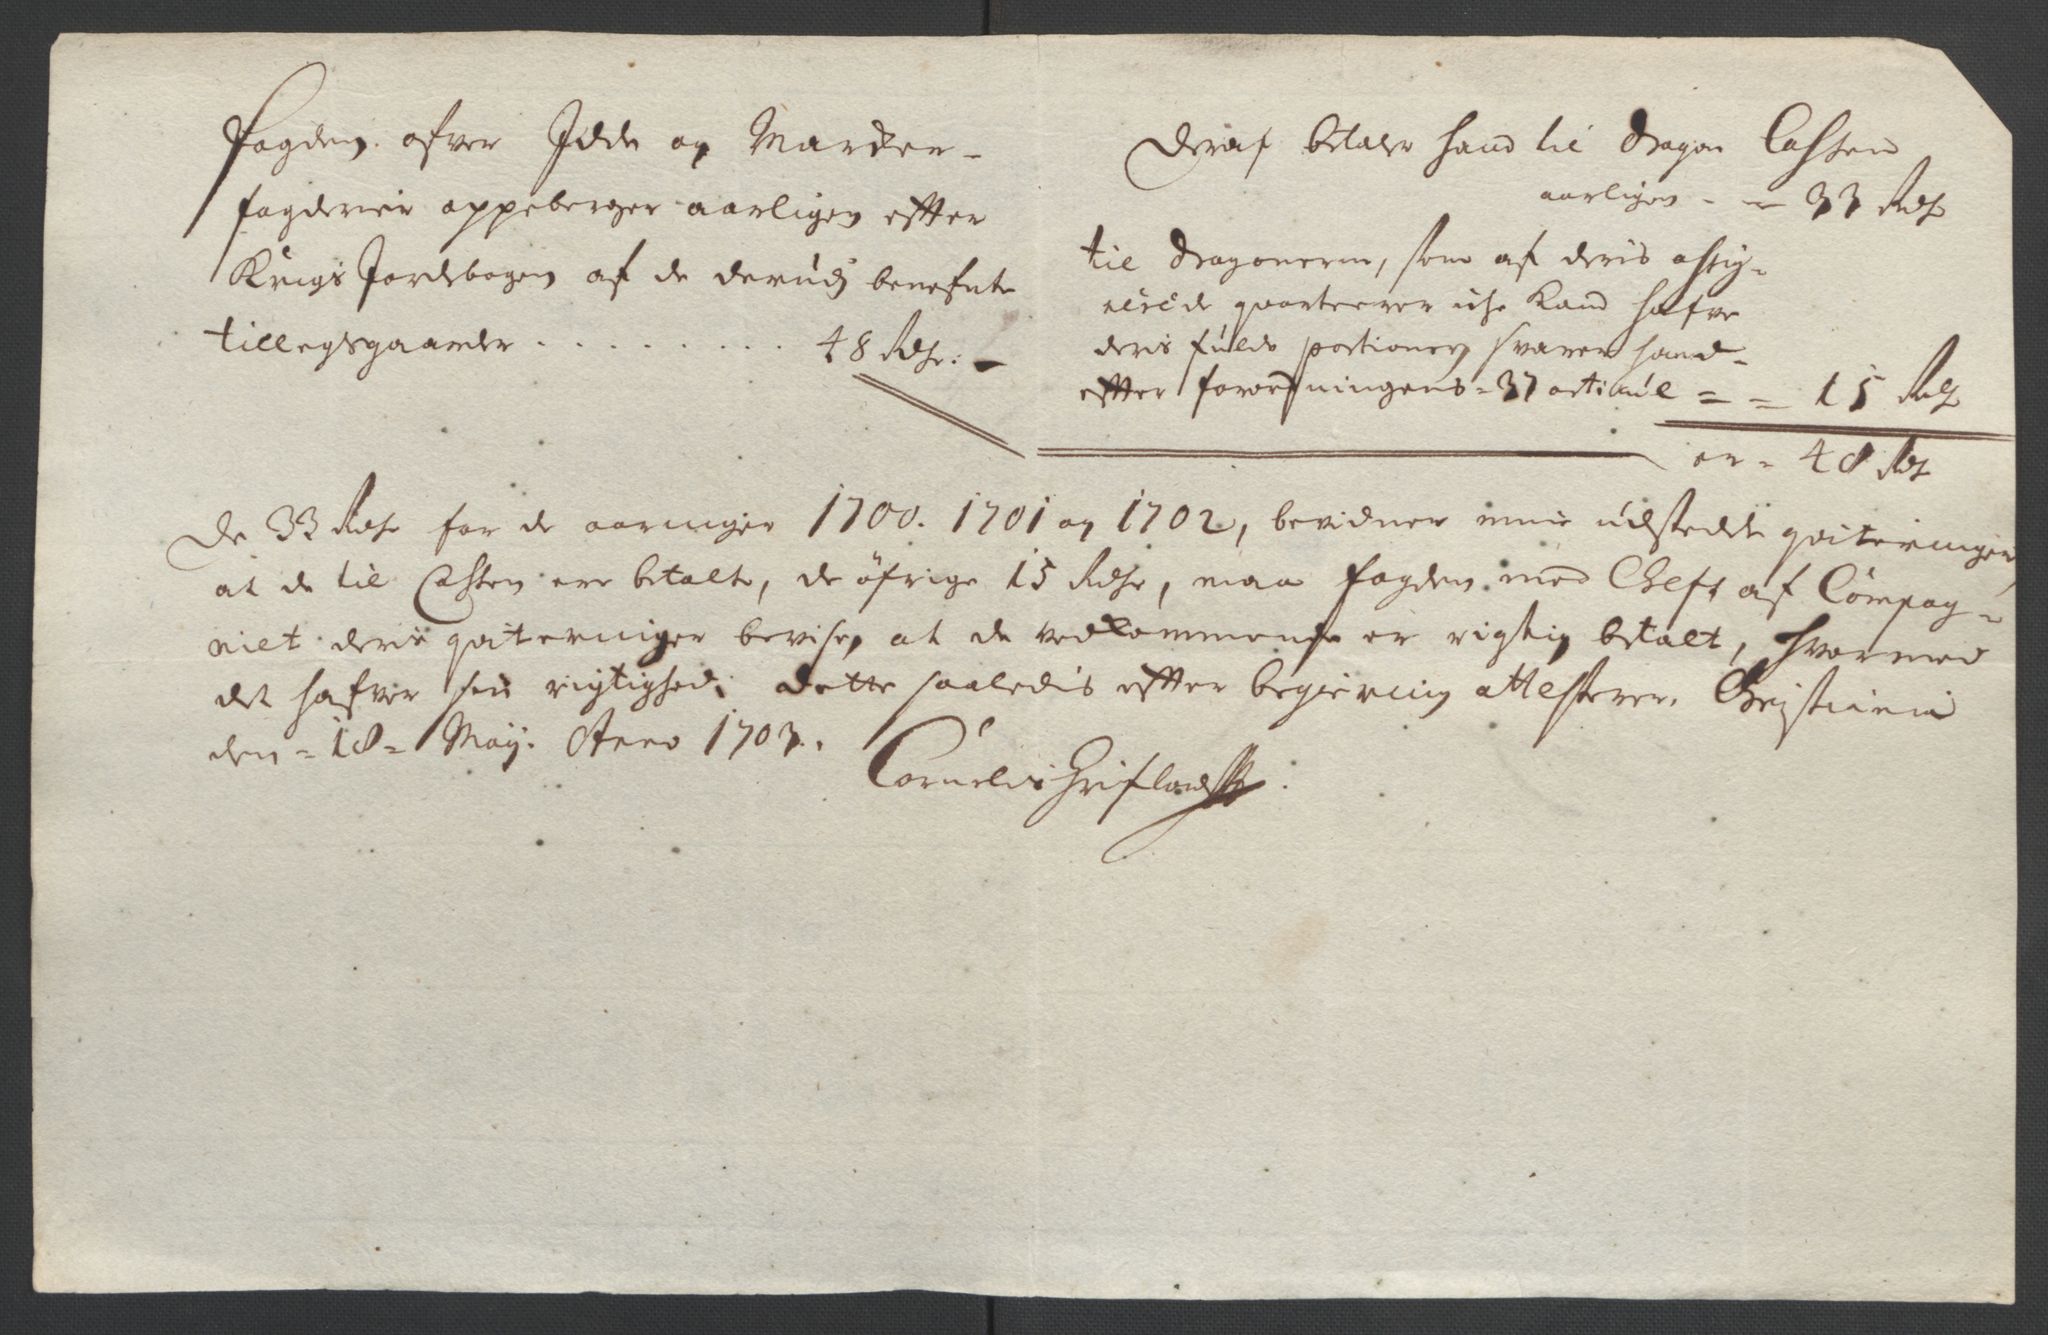 Fogden ofver Idde og Marcker-
fogderier oppeberger aarligen efter
Krigs Jordebogen af de derudj benefnte
tillegsgaarder . . . . . . . . . 48 Rdr:
Deraf betaler hand til dragon Cassen
aarligen - = 33 Rdr
til dragonerne, som af deris assig-
nerede quarteerer iche kand hafve
deris fulde portioner svarer hand
efter forordningens = 37 articul = = 15 Rdr
er = 48 Rdr
De 33 Rdr for de aaringer 1700. 1701 og 1702, bevidner mine udstedde qviteringer,
at de til Cassen ere betalte, de öfrige 15 Rdr, maa fogden med Chefs af Compag-
niet deris qviteringer bevise, at de vedkommende er rigtig betalt, hvormed
det hafver sin rigtighed. Dette saaledis efter begiering attesterer. Christiania
den = 18 = Maÿ. Anno 1703.
Cornelis